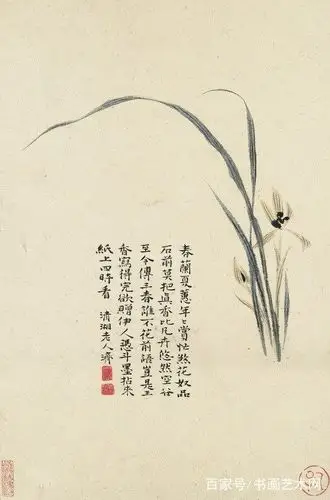 春蘭夏蕙年々嘗忙煞花奴品
石前莫把真香比凡卉悠然空谷
至今傳三春離不花前語豈是王
香寫得完欲贈伊人憑斗墨拈來
紙上四時看 清湘老人濟
百家号/书画艺术网